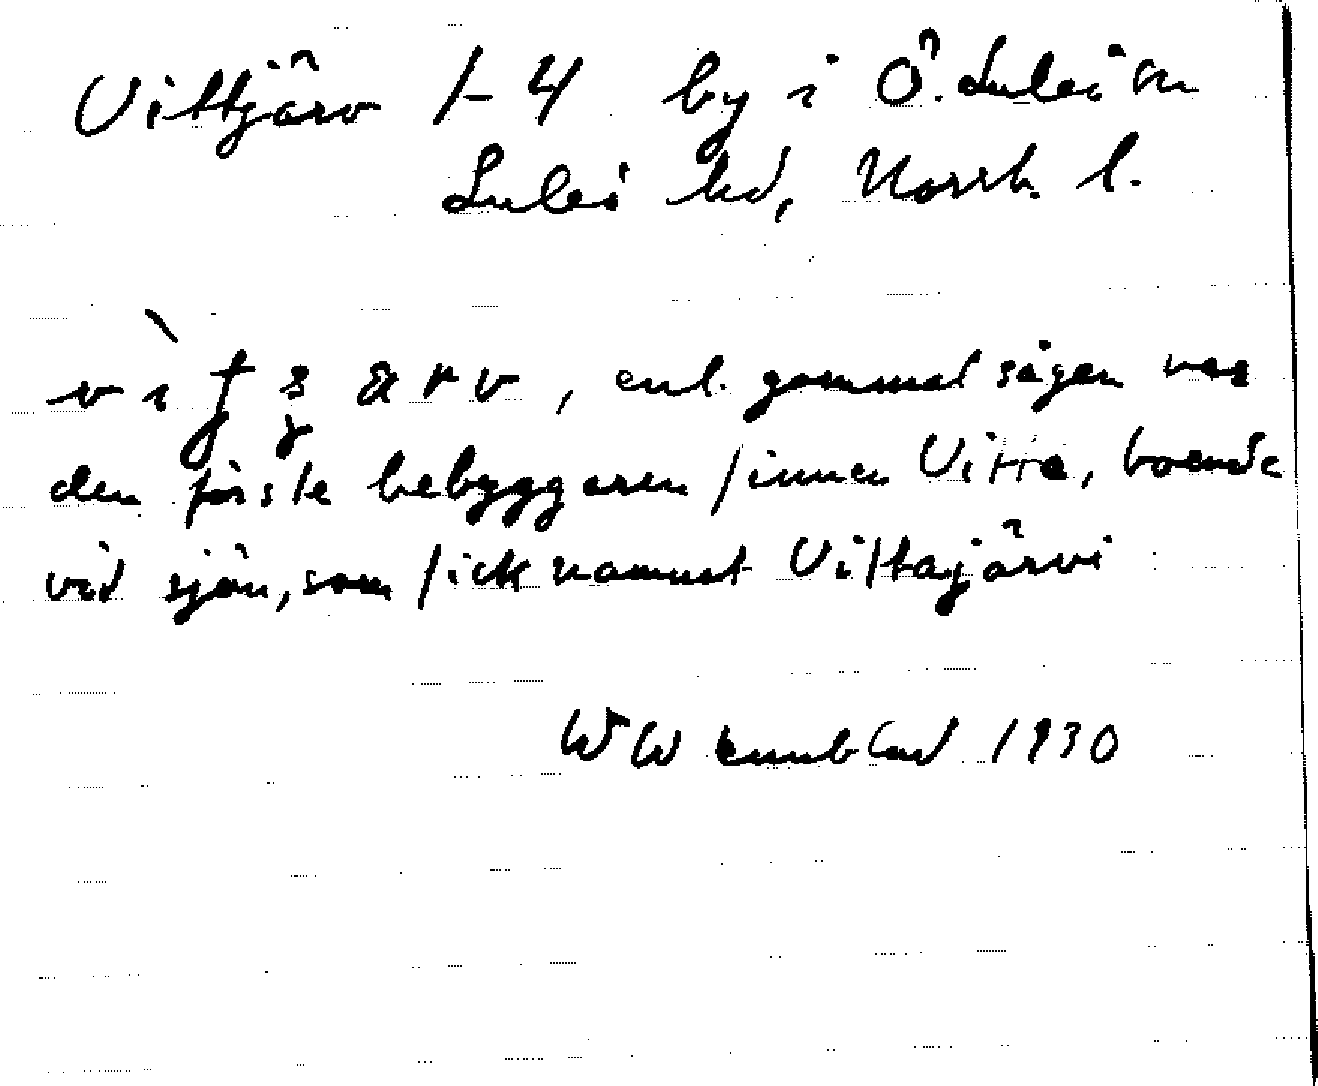 Vittjärv 1-4 by i Ö. Luleå sn
Luleå hd, Norrb. l.
enl. gammal sägen var
den förste bebyggaren finnen Vitta, boende
vid sjön, som fick namnet Vittajärvi
1930